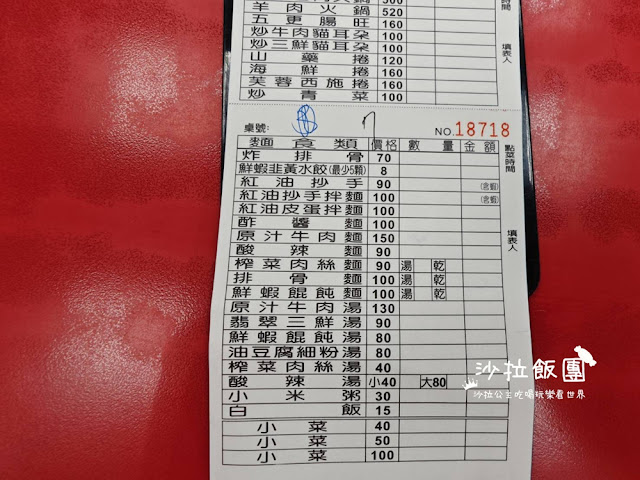 羊肉火鍋 520
五更腸旺 160
炒牛肉貓耳朵 100
炒三鮮貓耳朵 100
山藥捲 120
海鮮捲 160
芙蓉西施捲 160
炒青菜 100
時間
填表人
桌號:
NO.18718
麵食類 價格 數量 金額
點菜時間
炸排骨 70
鮮蝦韭黃水餃(最少5顆) 8
紅油抄手 90 (含蝦)
紅油抄手拌麵 100 (含蝦)
紅油皮蛋拌麵 100
酢醬麵 100
原汁牛肉麵 150
酸辣麵 90
榨菜肉絲麵 90 湯 乾
排骨麵 100 湯 乾
鮮蝦餛飩麵 100 湯 乾
原汁牛肉湯 130
翡翠三鮮湯 90
鮮蝦餛飩湯 80
油豆腐細粉湯 80
榨菜肉絲湯 40
酸辣湯 小40 大80
小米粥 30
白飯 15
小菜 40
小菜 50
小菜 100
填表人
沙拉飯團
沙拉公主吃喝玩樂看世界